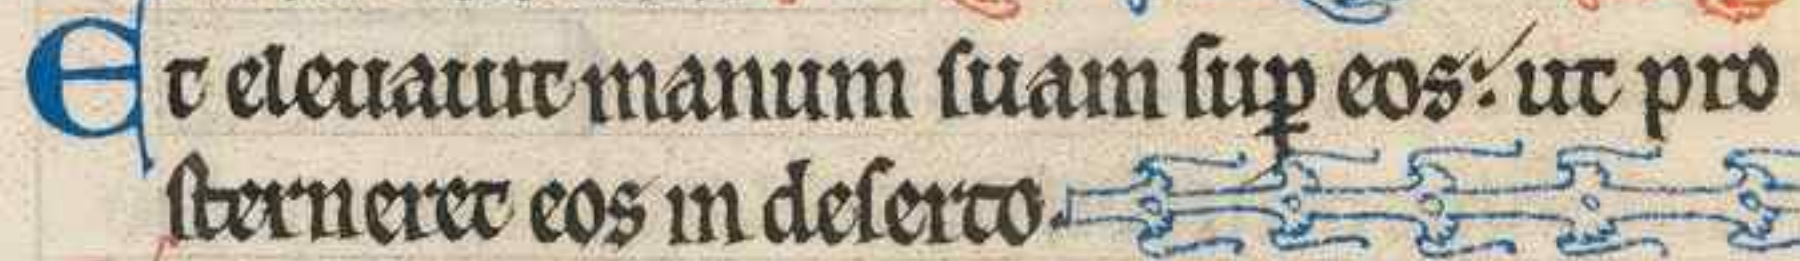 Et eleuauit manum suam suꝑ eos: ut pro
sterneret eos in deserto.